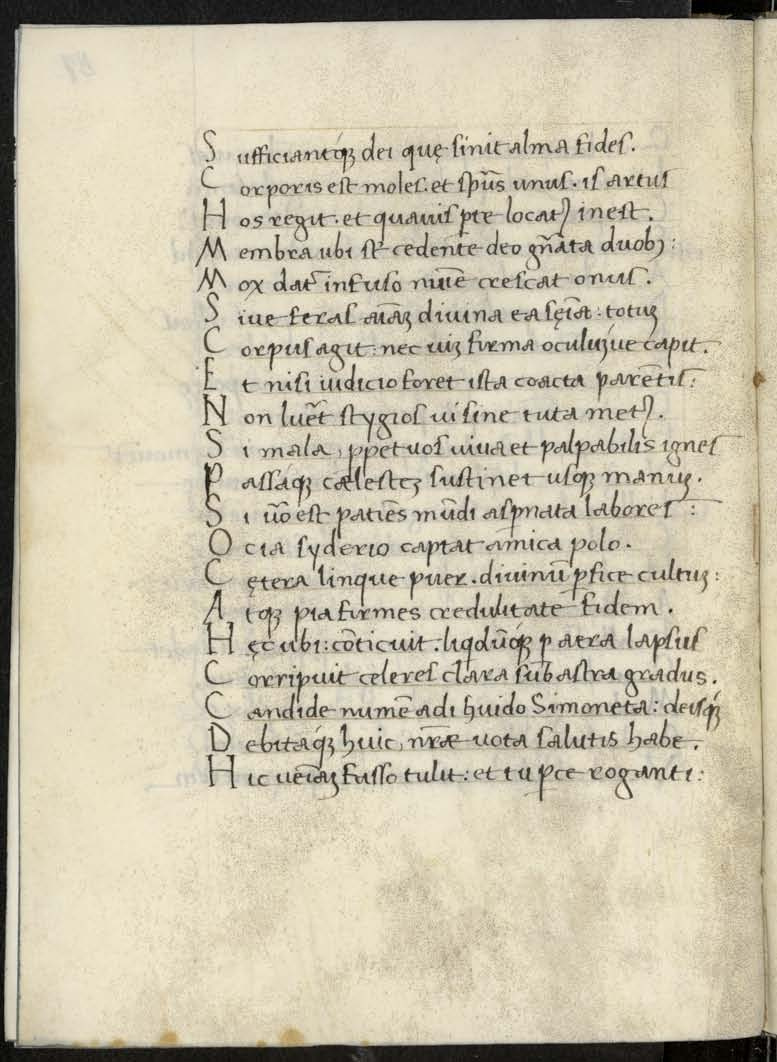 Sufficiantqꝫ dei quę sinit alma fides.
Corporis est moles. et spūs unus. is artus
Hos regit. et quauis ꝑte locatꝰ inest.
Membra ubi st̄ cedente deo gn̄ata duobꝫ:
Mox dat̄ infuso nūīe crescat onus.
Siue feras aīāꝫ diuina ea sęīa: totuꝫ
Corpus agit: nec uiꝫ firma oculuꝫue capit.
Et nisi iudicio foret ista coacta parētis:
Non luēt stygios ui sine tuta metꝰ.
Si mala, ꝑpetuos uiua et palpabilis ignes
Passaqꝫ cælesteꝫ sustinet usqꝫ manuꝫ.
Si ūo est patiēs mūdi aspnata labores:
Ocia syderio captat amica polo.
Cętera linque puer. diuinū ꝑfice cultuꝫ:
Atqꝫ pia firmes credulitate fidem.
Hęc ubi: cōticuit. liqdūqꝫ ꝑ aera lapsus
Corripuit celeres clara sub astra gradus.
Candide numē adi huido Simoneta: deisqꝫ
Debitaqꝫ huic, nr̄æ uota salutis habe.
Hic uēiaꝫ fusso tulit: et tu ꝑce roganti: